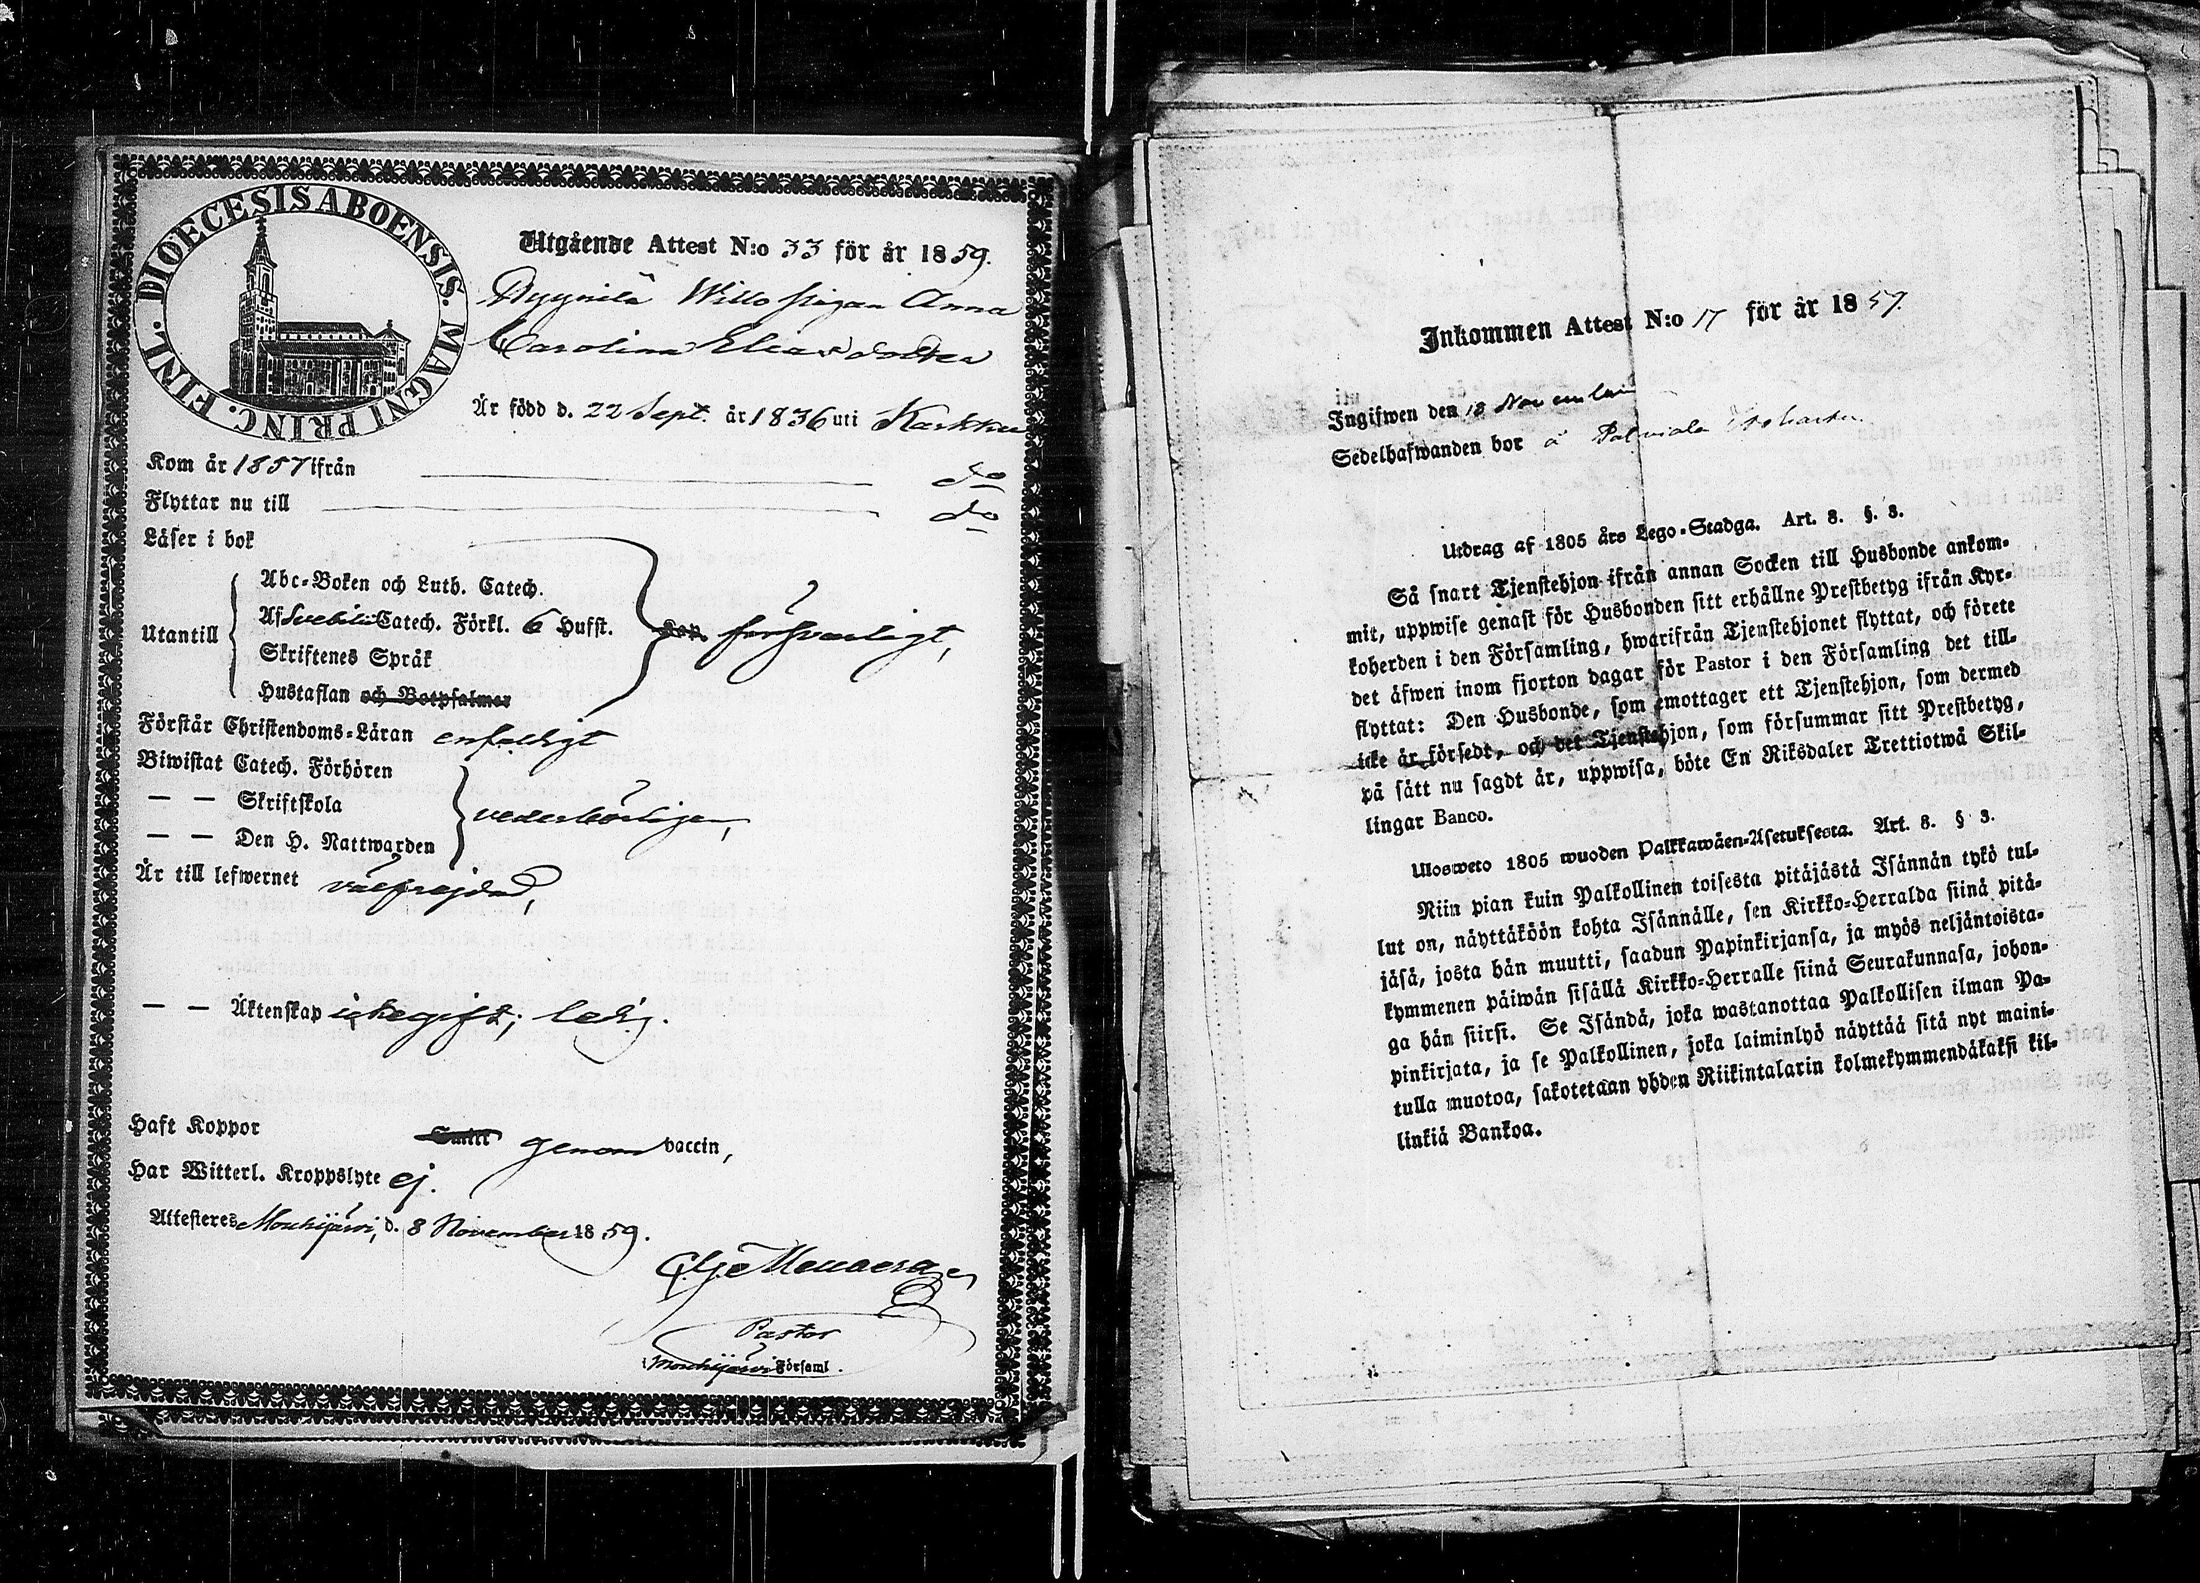 DIOECESIS ABOENSIS. MAGNI PRINC. FINL.
Utgående Attest N:o 33 för år 1859.
Anna
Carolina Eliasdotter
Är född d. 22 Sept. år 1836 uti Karkku
Kom år 1857 ifrån do
Flyttar nu till do
Läser i bok
Utantill
Abc-Boken och Luth. Catech.
Af Svebilii Catech. Förkl. 6 Hufst.
Skriftenes Språk
Hustaflan och Botpsalmer
försvarligt,
Förstår Christendoms-Läran enfaldigt
Biwistat Catech. Förhören
— — Skriftskola
— — Den H. Nattwarden
vederbörligen,
Är till lefwernet välfrejdad,
— — Äktenskap icke gift; ledig.
Haft Koppor genom vaccin,
Har Witterl. Kroppslyte ej.
Attesteras Mouhijärvi, d. 8 November 1859.
Pastor
i Mouhijärvi Församl.
Inkommen Attest N:o 17 för år 1859.
Ingifwen den 18 November
Sedelhafwanden bor å
Utdrag af 1805 års Lego-Stadga. Art. 8. §. 3.
Så snart Tjenstehjon ifrån annan Socken till Husbonde ankom-
mit, uppwise genast för Husbonden sitt erhållne Prestbetyg ifrån Kyr-
koherden i den Församling, hwarifrån Tjenstehjonet flyttat, och förete
det äfwen inom fjorton dagar för Pastor i den Församling det till-
flyttat: Den Husbonde, som emottager ett Tjenstehjon, som dermed
icke är försedt, och det Tjenstehjon, som försummar sitt Prestbetyg,
på sätt nu sagdt är, uppwisa, böte En Riksdaler Trettiotwå Skil-
lingar Banco.
Ulosweto 1805 wuoden Palkkawäen-Asetuksesta. Art. 8. § 3.
Niin pian kuin Palkollinen toisesta pitäjästä Isännän tykö tul-
lut on, näyttäköön kohta Isännälle, sen Kirkko-Herralda siinä pitä-
jäsä, josta hän muutti, saadun Papinkirjansa, ja myös neljäntoista-
kymmenen päiwän sisällä Kirkko-Herralle siinä Seurakunnasa, johon-
ga hän siirsi. Se Isändä, joka wastanottaa Palkollisen ilman Pa-
pinkirjata, ja se Palkollinen, joka laiminlyö näyttää sitä nyt maini-
tulla muotoa, sakotetaan yhden Riikintalarin kolmekymmendäkaksi kil-
linkiä Bankoa.